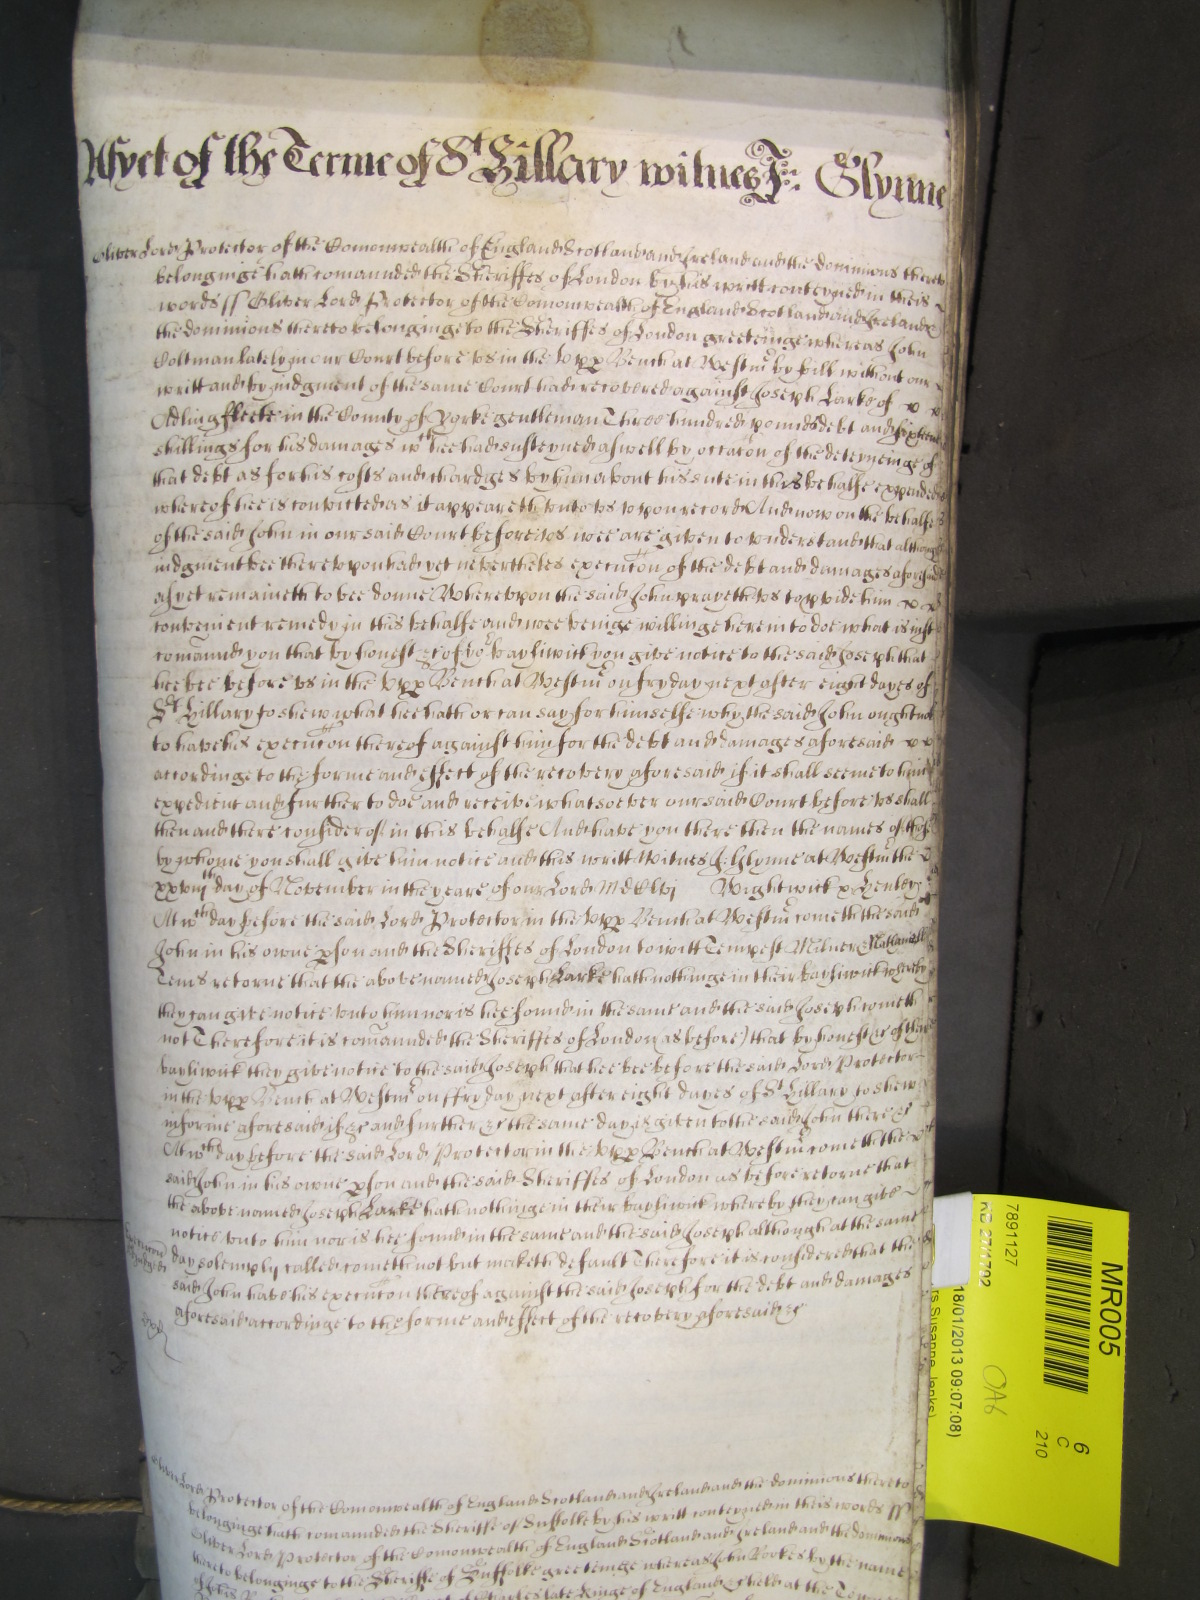 As yet of the Terme of St Hillary witnes J: Glynne
Oliver Lord Protector of the Comonwealth of England Scotland and Ireland and the dominions thereto
belonginge hath comannded the Sheriffes of London by his writt conteyned in theis
words ss Oliver Lord Protector of the Comonwealth of England Scotland and Ireland &
the dominions thereto belonginge to the Sheriffes of London greetinge whereas John
Coltman lately in our Court before us in the Upp Bench at Westmr by bill without our
writt and by judgment of the same Court had recovered against Joseph Larke of
Adlingfleete in the County of Yorke gentleman Three hundred pounds debt and sixteene
shillings for his damages wch hee had susteyned aswell by occacon of the deteyneinge of
that debt as for his costs and chardges by him about his sute in this behalfe expended
whereof hee is convicted as it appeareth unto us uppon record And now on the behalfe
of the said John in our said Court before us wee are given to understand that although
judgment bee thereuppon had yet nevertheles execucon of the debt and damages aforesaid
as yet remaineth to bee donne Whereupon the said John prayeth us to pvide him
convenient remedy in this behalfe and wee beinge willinge herein to doe what is just
comannd you that by honest &c of yor bayliwick you give notice to the said Joseph that
hee bee before us in the Upp Bench at Westmr on fryday next after eight dayes of
St Hillary to shew what hee hath or can say for himselfe why the said John ought not
to have his execucon thereof against him for the debt and damages aforesaid
accordinge to the forme and effect of the recovery aforesaid if it shall seeme to him
expedient and further to doe and receive whatsoever our said Court before us shall
then and there consider of in this behalfe And have you there then the names of those
by whome you shall give him notice and this writt Witnes J: Glynne at Westmr the
xxviijth day of November in the yeare of our Lord MdClvj Wightwick & Henley
At wch day before the said Lord Protector in the Upp Bench at Westmr cometh the said
John in his owne pson and the Sheriffes of London to witt Tempest Milner & Nathaniell
Tems retorne that the above named Joseph Larke hath nothinge in their bayliwick whereby
they can give notice unto him nor is hee found in the same and the said Joseph cometh
not Therefore it is comannded the Sheriffes of London (as before) that by honest &c of their
bayliwick they give notice to the said Joseph that hee bee before the said Lord Protector
in the Upp Bench at Westmr on ffryday next after eight dayes of St Hillary to shew
in forme aforesaid if &c and further &c the same day is given to the said John there &c
At wch day before the said Lord Protector in the Upp Bench at Westmr cometh the
said John in his owne pson and the said Sheriffes of London as before retorne that
the above named Joseph Larke hath nothinge in their bayliwick whereby they can give
notice unto him nor is hee found in the same and the said Joseph although at the same
day solemply called cometh not but maketh default Therefore it is considered that the
said John have his execucon thereof against the said Joseph for the debt and damages
aforesaid accordinge to the forme and effect of the recovery aforesaid &c
Oliver Lord Protector of the Comonwealth of England Scotland and Ireland and the dominions thereto
belonginge hath comannded the Sheriffe of Suffolke by his writt conteyned in theis words ss
Oliver Lord Protector of the Comonwealth of England Scotland and Ireland and the dominions
thereto belonginge to the Sheriffe of Suffolke greetinge whereas John by the name
late Kinge of England at the
MR005
6
C
210
7891127
KB 27/1792
18/01/2013 09:07:08)
rs Susanne Jenks)
OA6